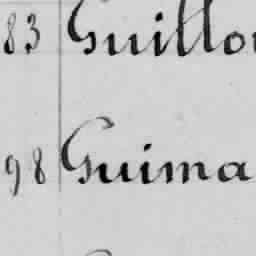 83 Guillo
98 Guima